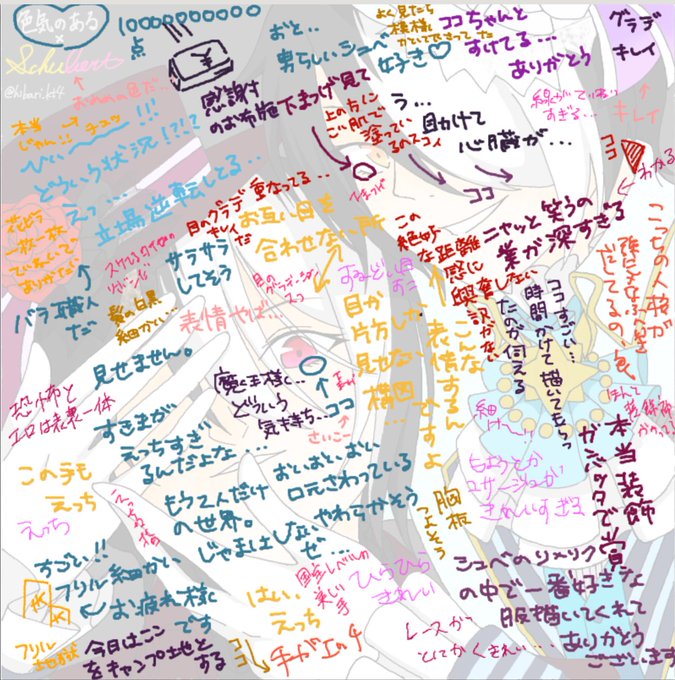 色気のある
×
Schubert
@hibari_kt4
10000000000
点
¥
感謝
のお布施
おと…
男らしいシュベ
好き♡
よく見たら
模様
かいて下さってた
ココちゃんと
すけてる…
ありがとう
グラデ
キレイ
線がていねい
すぎる…
キレイ
ココ
わかる
本当→
じゃん!!
チュッ
ひぃ〜〜!!!
どういう状況!?!?
えっ…
立場逆転してる…
下まつげ見て
上の方に
塗ってい
るのスコイ
う…
目かけて
心臓が…
ココ
花びら
一枚一枚
ていねいで
ありがたい
↑
バラ職人
だ
髪の白黒
細かい…
サラサラ
してそう
表情やば…
目のグラデ
キレイだ
重なってる…
お互い目を
合わせない所
目のグラデーション
するどい目
すこ
目が
片方しか
見せない
構図…
この
絶妙
な距離
感に
興奮しない
訳がない
こんな
表情するん
ですよ
ニヤッと笑うの
業が深すぎる
ココすごい…
時間かけて描いてもらっ
たのが伝える
こっちの人格が
見せません。
恐怖と
エロは表裏一体
すきまが
えっちすぎい
るんだよな…
魔王様…
どういう
気持ち…
ココ
さいこー
この手も
えっち
えっち
もう2人だけ
の世界。
じゃまはしないぜ…
おいおいおい
口元さわっている
やわらかそう
胸板
つよそう
細け〜!!
きれいすぎる
本当装飾
がバッタで賞
すごい!!
フリル細かい
お疲れ様
です
フリル
地獄
今日はここ
をキャンプ地と
する
はい
えっち
国宝レベルの
美しい
手
ココ
手がエッチ
ひらひら
きれい
レースが
とにかくきれい…
シュベのリメリク
の中で一番好きな
服描いてくれて
ありがとう
ございます